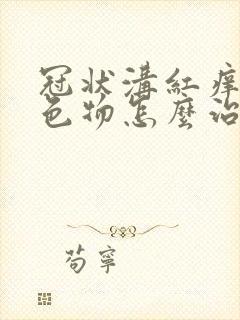 冠狀溝紅痒
色物怎麼治
苟寧